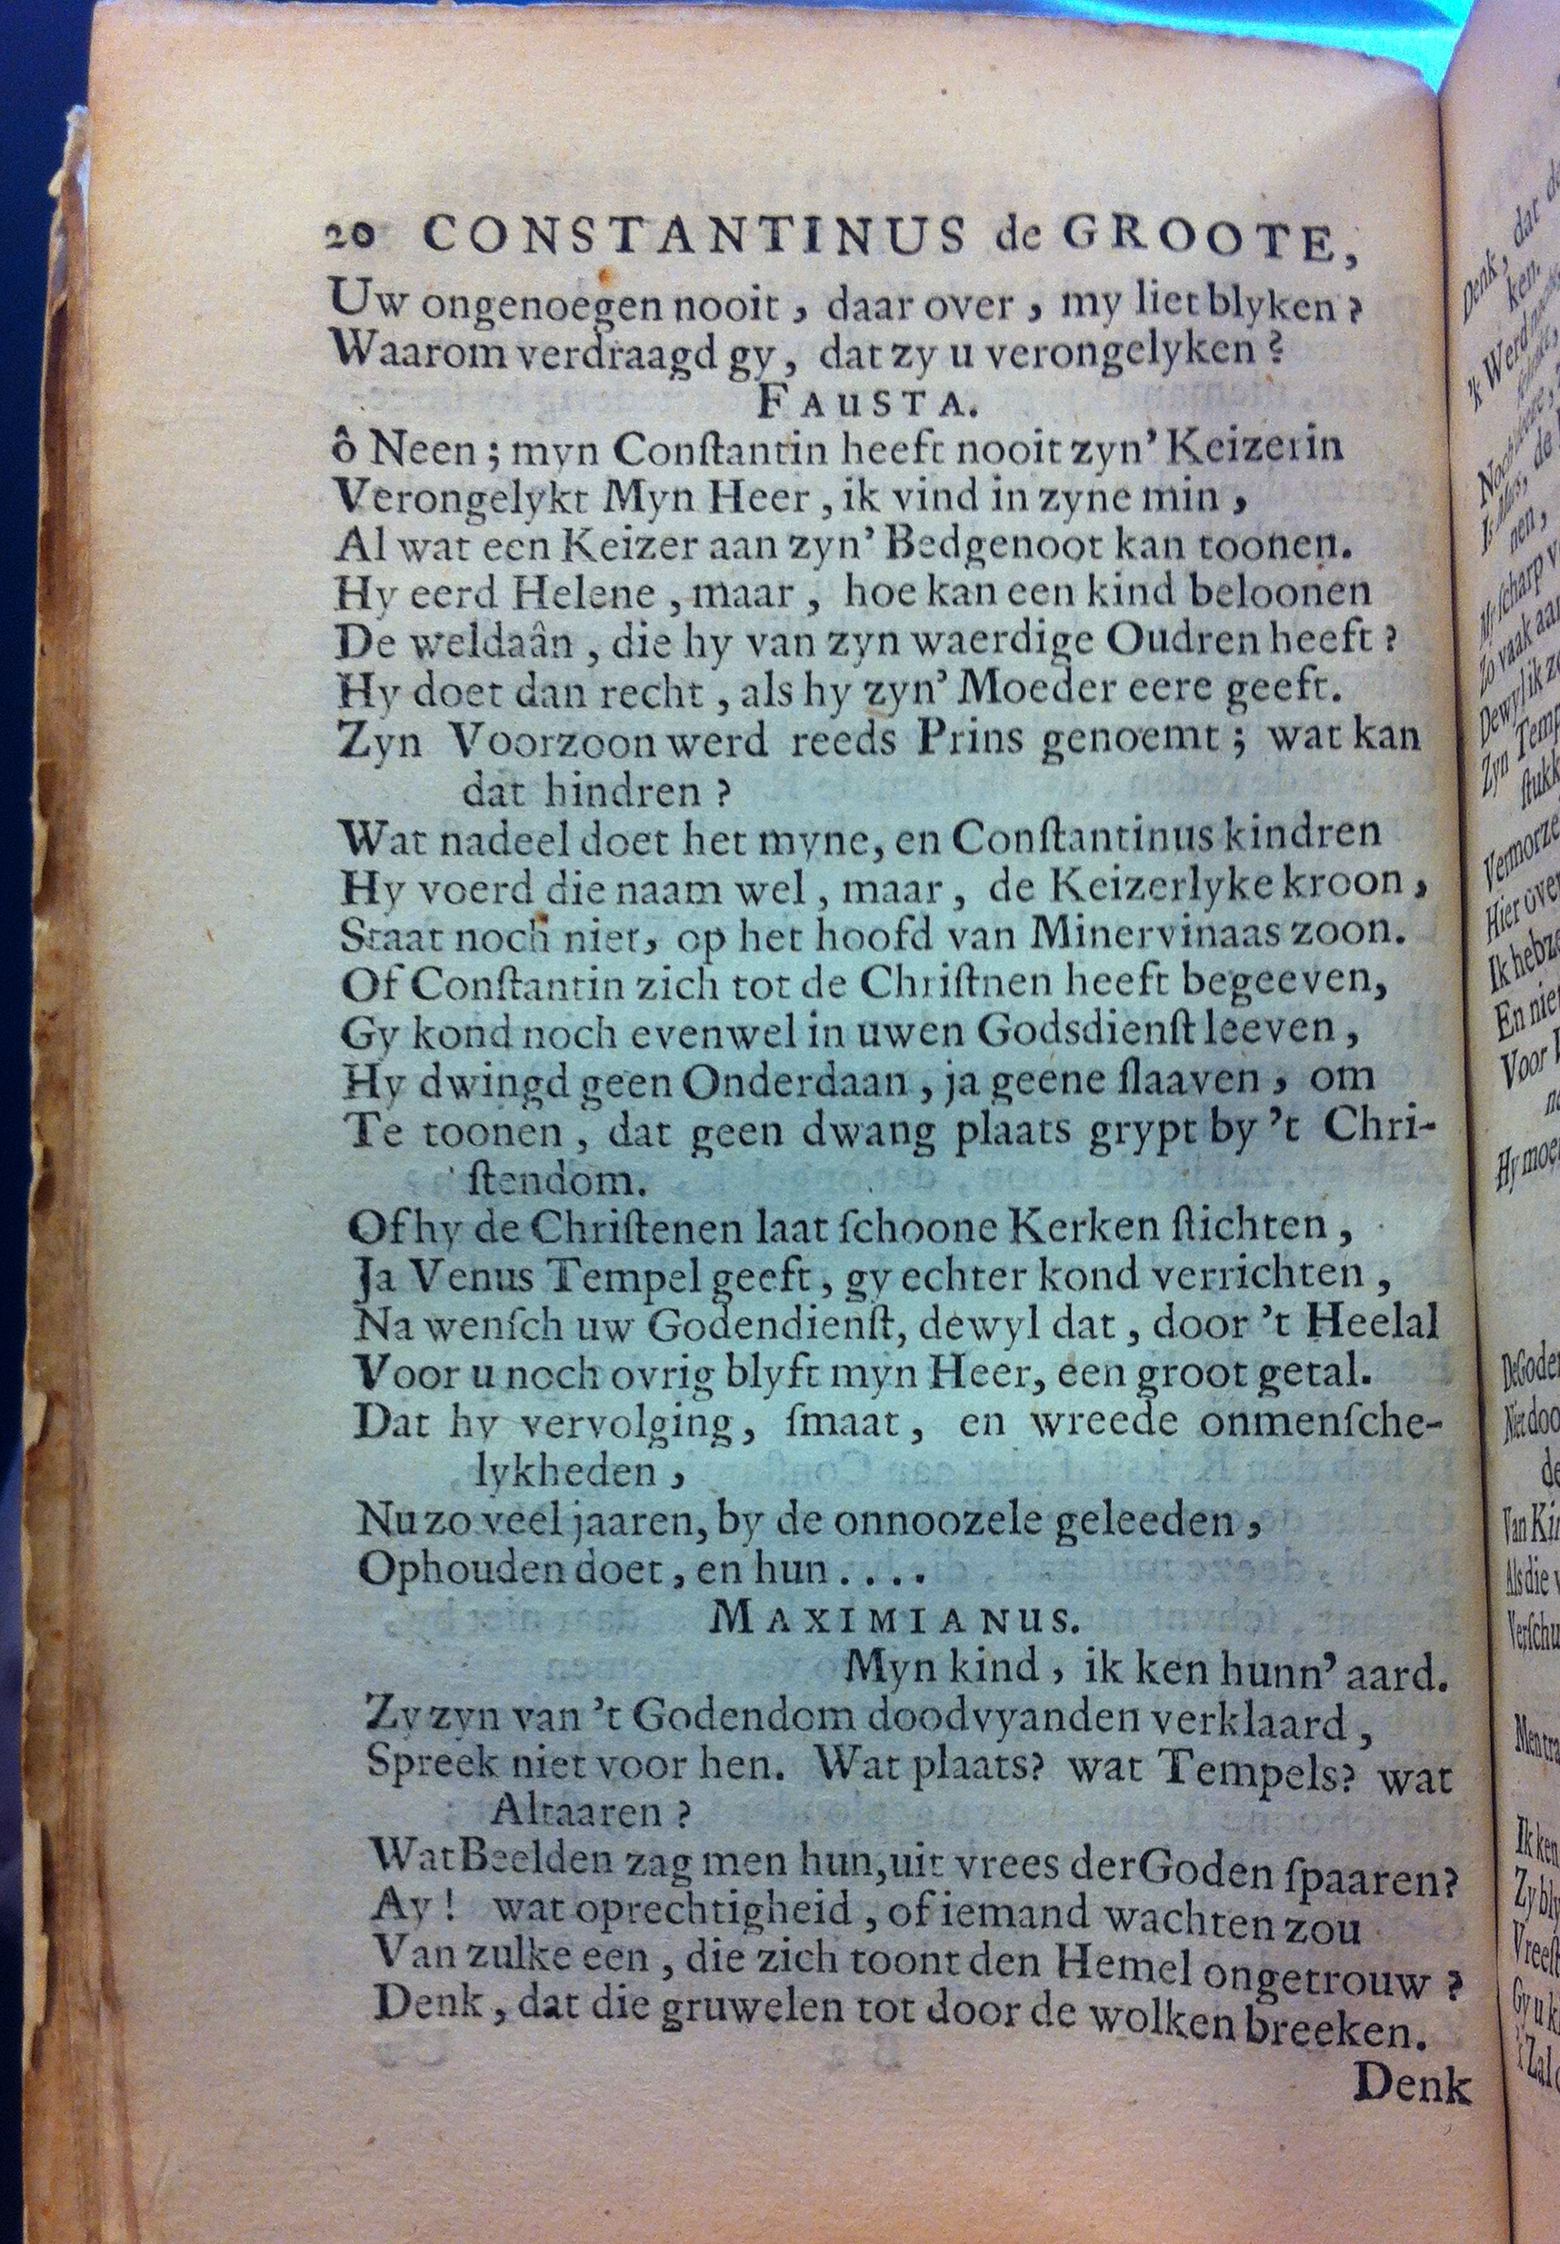 20 CONSTANTINUS de GROOTE,
Uw ongenoegen nooit, daar over, my liet blyken?
Waarom verdraagd gy, dat zy u verongelyken?
FAUSTA.
ô Neen; myn Conſtantin heeft nooit zyn' Keizerin
Verongelykt Myn Heer, ik vind in zyne min,
Al wat een Keizer aan zyn' Bedgenoot kan toonen.
Hy eerd Helene, maar, hoe kan een kind beloonen
De weldaân, die hy van zyn waerdige Oudren heeft?
Hy doet dan recht, als hy zyn' Moeder eere geeft.
Zyn Voorzoon werd reeds Prins genoemt; wat kan
dat hindren?
Wat nadeel doet het myne, en Conſtantinus kindren
Hy voerd die naam wel, maar, de Keizerlyke kroon,
Staat noch niet, op het hoofd van Minervinaas zoon.
Of Conſtantin zich tot de Chriſtnen heeft begeeven,
Gy kond noch evenwel in uwen Godsdienſt leeven,
Hy dwingd geen Onderdaan, ja geene ſlaaven, om
Te toonen, dat geen dwang plaats grypt by 't Chri-
ſtendom.
Of hy de Chriſtenen laat ſchoone Kerken ſtichten,
Ja Venus Tempel geeft, gy echter kond verrichten,
Na wenſch uw Godendienſt, dewyl dat, door 't Heelal
Voor u noch ovrig blyft myn Heer, een groot getal.
Dat hy vervolging, ſmaat, en wreede onmenſche-
lykheden,
Nu zo veel jaaren, by de onnoozele geleeden,
Ophouden doet, en hun....
MAXIMIANUS.
Myn kind, ik ken hunn' aard.
Zy zyn van 't Godendom doodvyanden verklaard,
Spreek niet voor hen. Wat plaats? wat Tempels? wat
Altaaren?
Wat Beelden zag men hun, uit vrees der Goden ſpaaren?
Ay! wat oprechtigheid, of iemand wachten zou
Van zulke een, die zich toont den Hemel ongetrouw?
Denk, dat die gruwelen tot door de wolken breeken.
Denk